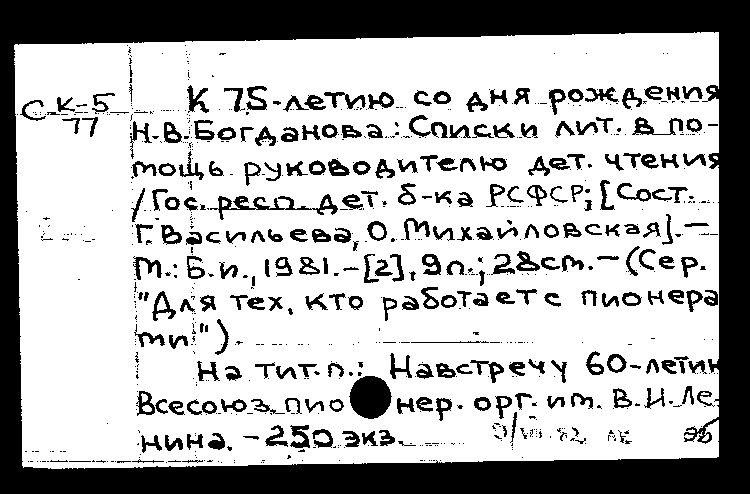 С К-5
77
К 75-летию со дня рождения
Н.В.Богданова: Списки лит. в по-
мощь руководителю дет. чтения
/Гос. респ. дет. б-ка РСФСР; [Сост.
Г.Васильева, О.Михайловская].—
М.: Б.и., 1981.-[2], 9л.; 28см.—(Сер.
"Для тех, кто работает с пионера
ми").
На тит.л.: Навстречу 60-летию
Всесоюз. пионер. орг. им. В.И.Ле-
нина. - 250 экз.